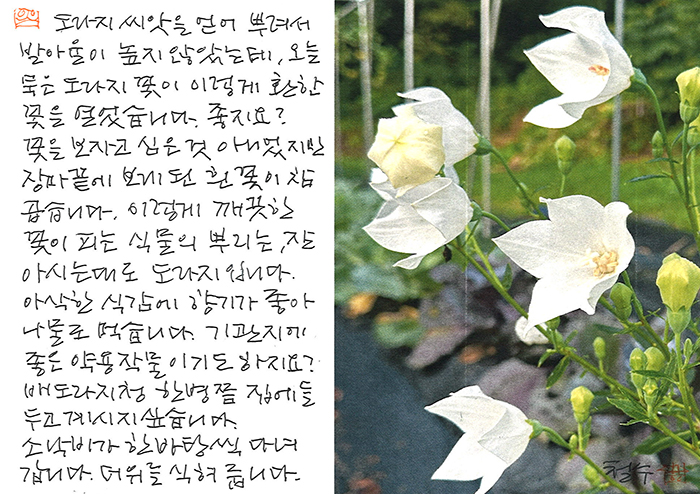 도라지 씨앗을 얻어 뿌려서
발아율이 높지 않았는데, 오늘
묵은 도라지 꽃이 이렇게 환한
꽃을 열었습니다. 좋지요?
꽃을 보자고 심은 것 아니었지만
장마끝에 보게 된 흰 꽃이 참
곱습니다. 이렇게 깨끗한
꽃이 피는 식물의 뿌리는, 잘
아시는대로 도라지입니다.
아삭한 식감에 향기가 좋아
나물로 먹습니다. 기관지에
좋은 약용작물이기도 하지요?
배도라지청 한병쯤 집에들
두고 계시지 싶습니다.
소낙비가 한바탕씩 다녀
갑니다. 더위를 식혀 줍니다.
철수